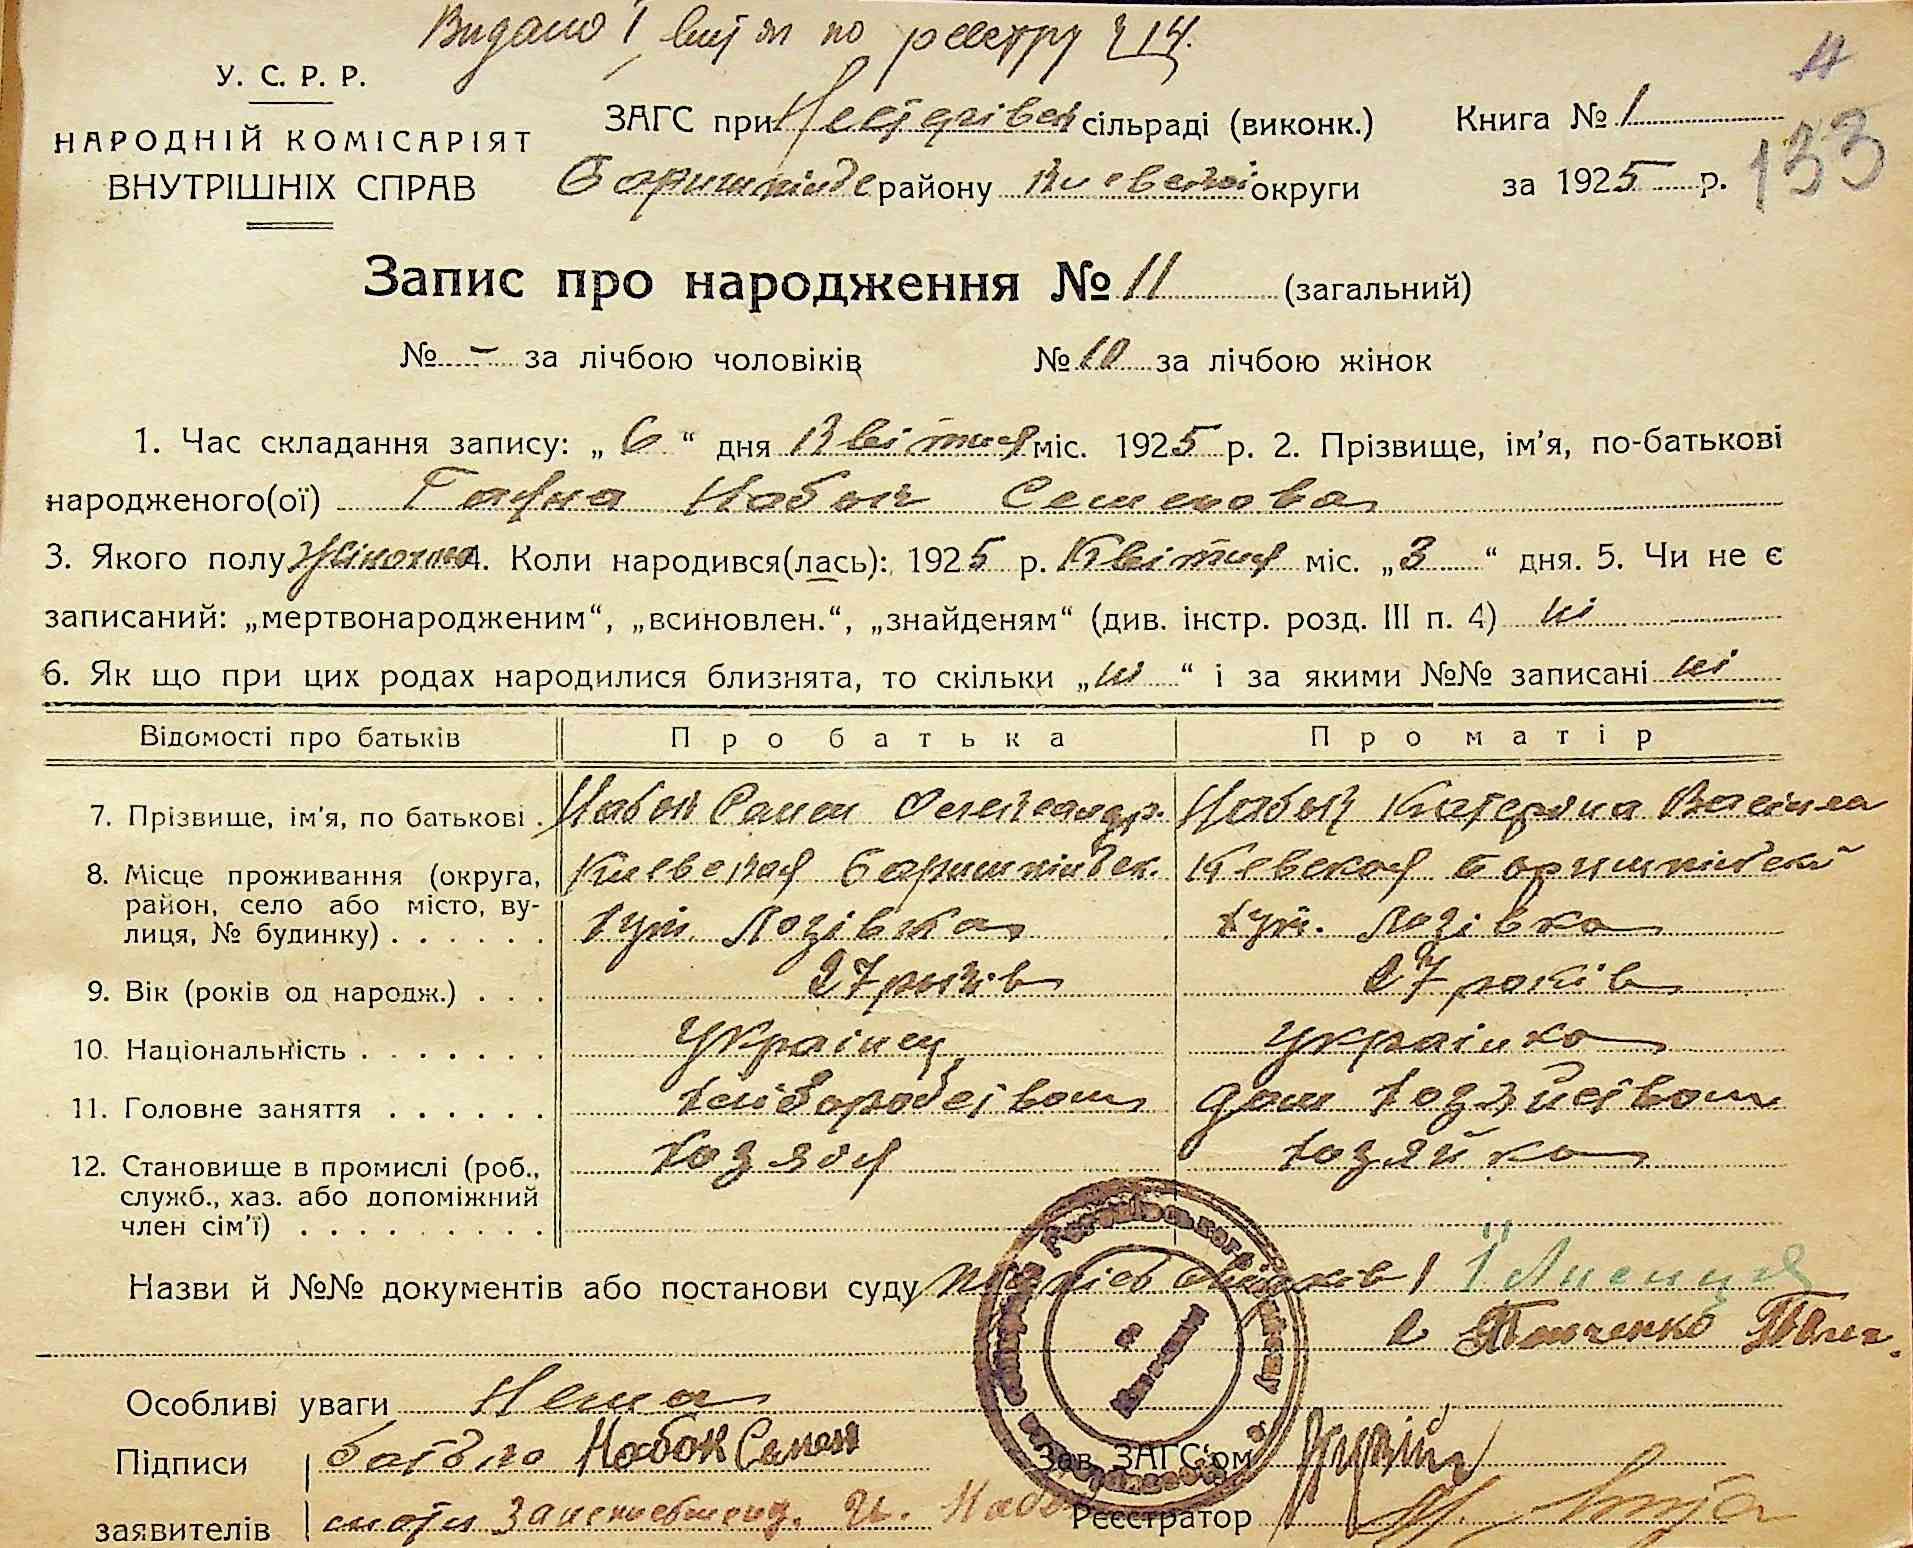 Видано 1 витяг по реєстру № 14.
4
У. С. Р. Р.
НАРОДНІЙ КОМІСАРІЯТ
ВНУТРІШНІХ СПРАВ
ЗАГС при сільраді (виконк.)
Книга № 1
133
Боришпільс району Киевської округи
за 1925 р.
Запис про народження № 11 (загальний)
№ - за лічбою чоловіків № 10 за лічбою жінок
1. Час складання запису: „ 6 “ дня Квітня міс. 1925 р. 2. Прізвище, ім'я, по-батькові
народженого(ої) Ганна Набок Семенова
3. Якого полу жіночого 4. Коли народився(лась): 1925 р. Квітня міс. „3 “ дня. 5. Чи не є
записаний: „мертвонародженим“, „всиновлен.“, „знайденям“ (див. інстр. розд. III п. 4) ні
6. Як що при цих родах народилися близнята, то скільки „ні “ і за якими №№ записані ні
Відомості про батьків Про батька Про матір
7. Прізвище, ім'я, по батькові . Набок Семен Олександр. Набок Катерина Васил
8. Місце проживання (округа, Киевская Боришпільск. Кевская Боришпільск
район, село або місто, ву- хут. Лозівка хут. Лозівка
лиця, № будинку) . . . . . .
9. Вік (років од народж.) . . . 27 років 27 років
10. Національність . . . . . . . Украінец Украінка
11. Головне заняття . . . . . . хліборобством дом хозяйством
12. Становище в промислі (роб., хозяїн хозяйка
служб., хаз. або допоміжний
член сім'ї) . . . . . . . . .
Назви й №№ документів або постанови суду 1
2
Особливі уваги Нема
Підписи батько Набок Семен Зав. ЗАГС'ом
заявителів мати Н. Набок Реєстратор